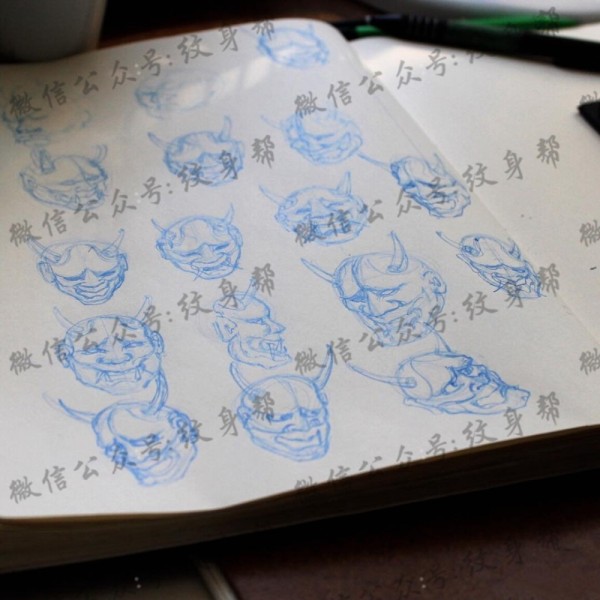 微信公众号:纹身帮
微信公众号:纹身帮
微信公众号:纹身帮
微信公众号:纹身帮
微信公众号:纹身帮
微信公众号:纹身帮
微信公众号:纹身帮
微信公众号:纹身帮
微信公众号:纹身帮